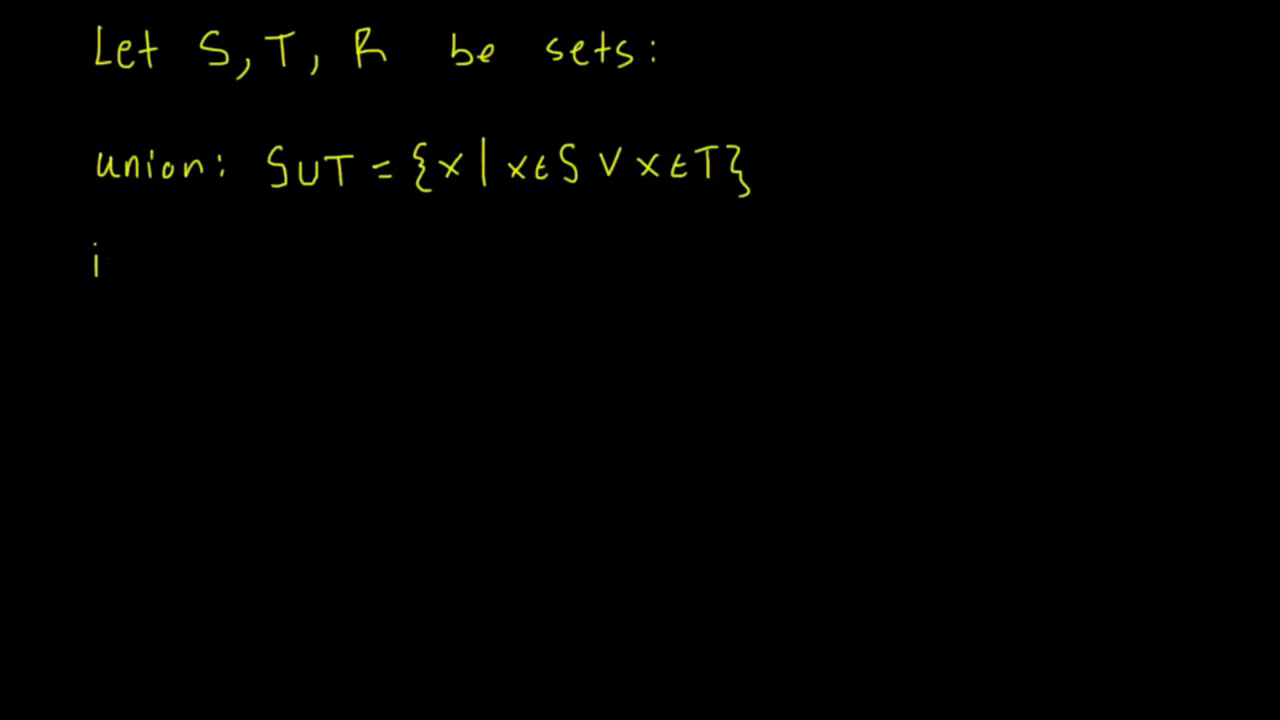 Let S, T, R be sets:
union: S∪T = {x | x∈S ∨ x∈T}
i